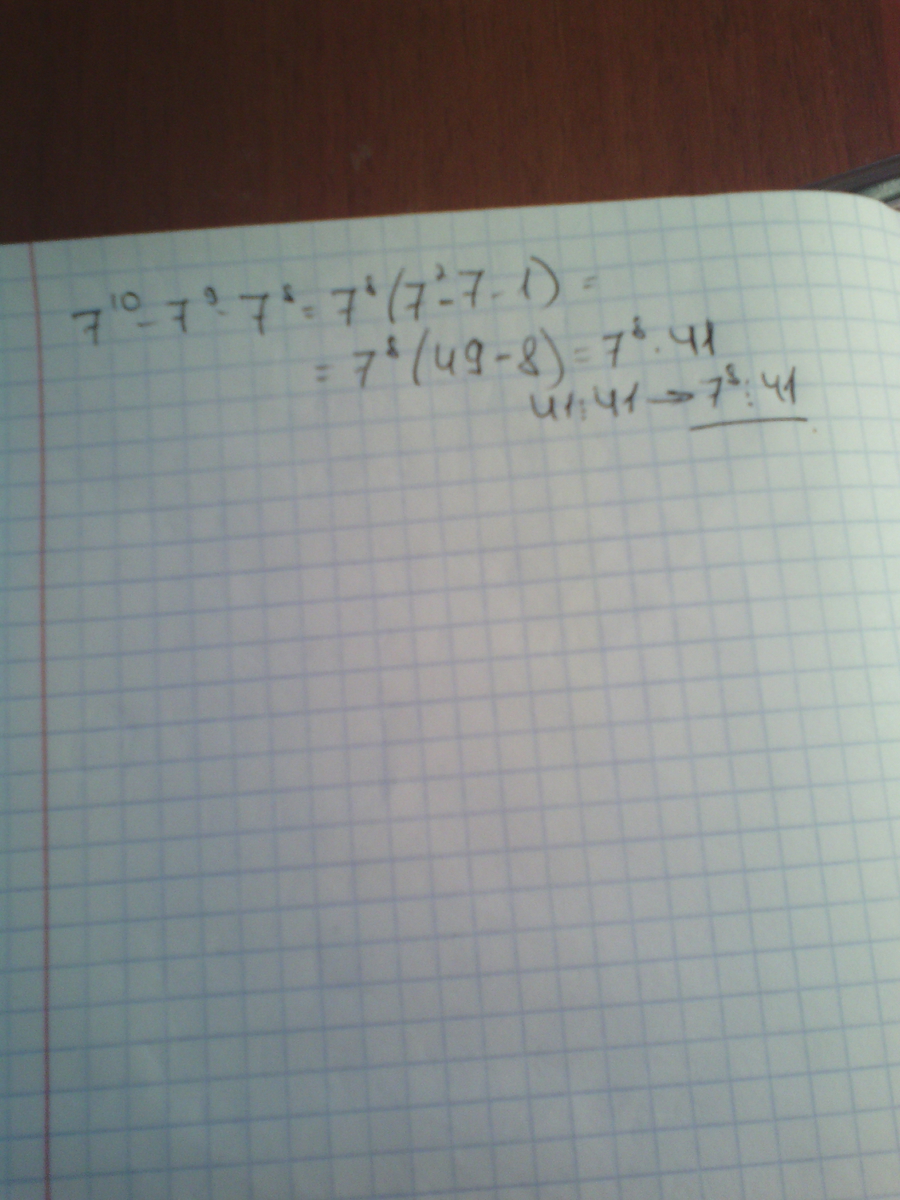 7¹⁰ - 7⁹ - 7⁸ = 7⁸ (7² - 7 - 1) =
= 7⁸ (49 - 8) = 7⁸ · 41
41 ⋮ 41 → 7⁸ ⋮ 41